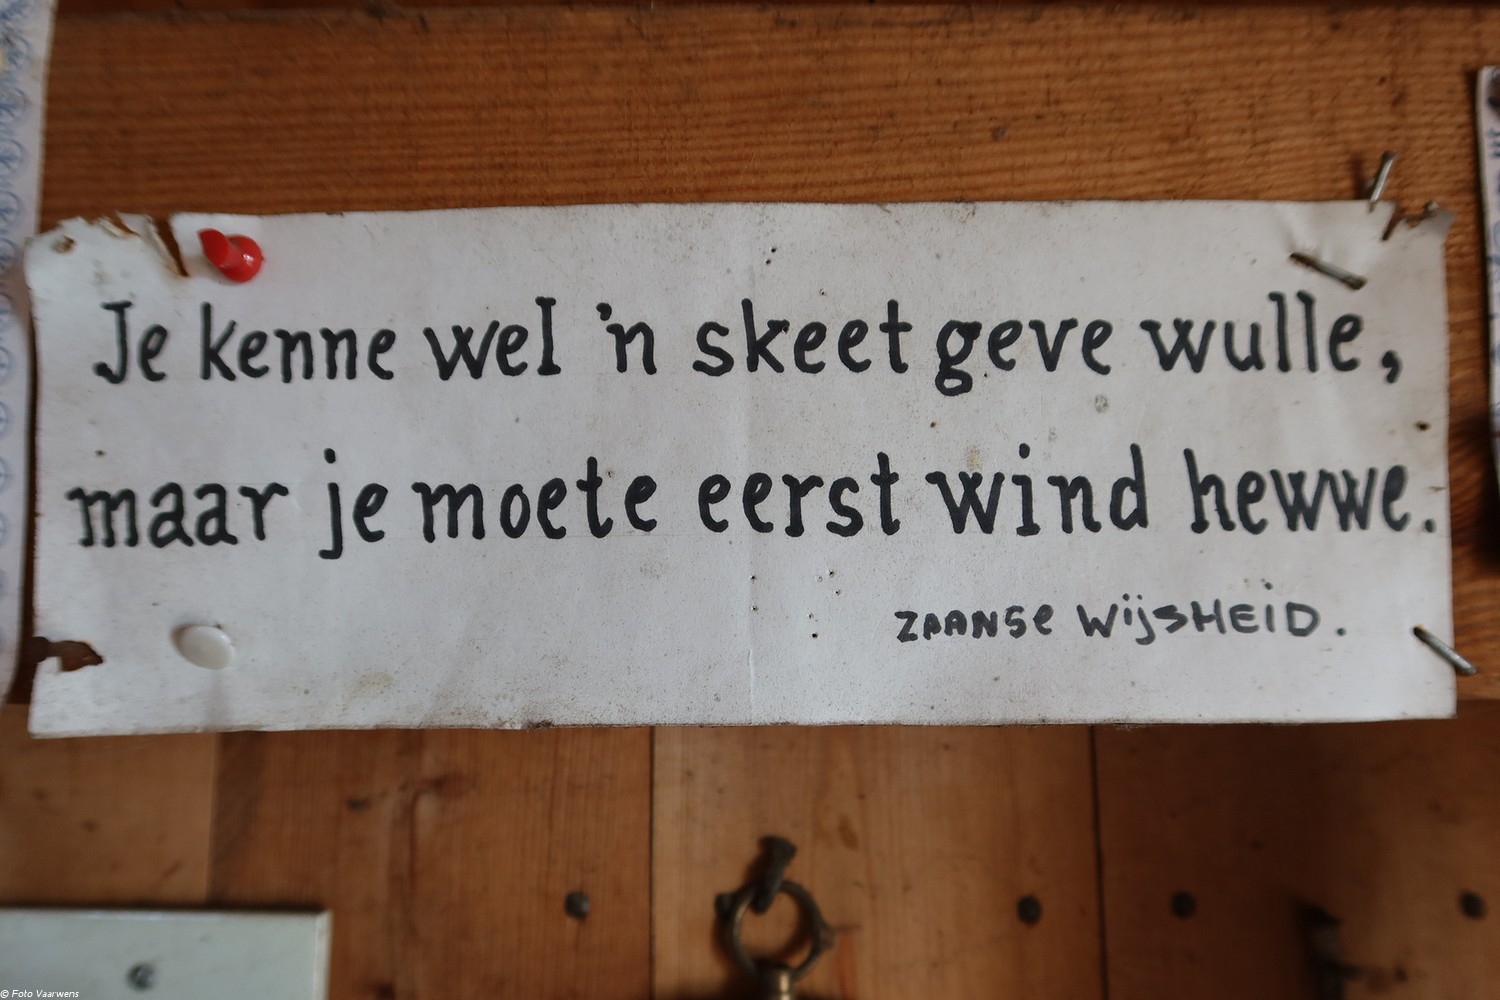 Je kenne wel 'n skeet geve wulle,
maar je moete eerst wind hewwe.
ZAANSe WijSHEiD.
© Foto Vaarwens